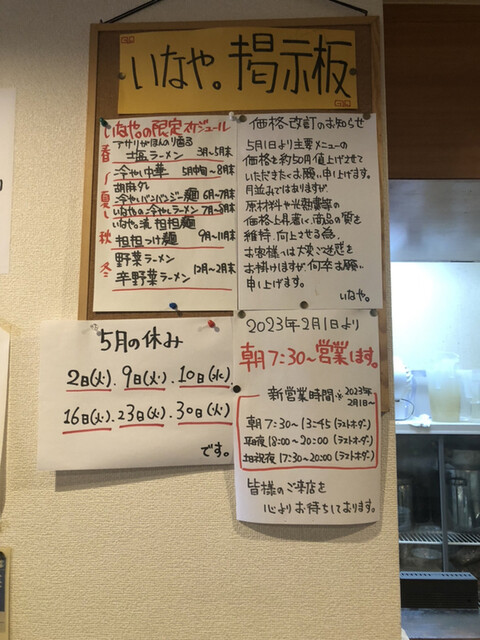 いなや。掲示板
いなや。の限定スケジュール
春
アサリがほんのり香る
塩ラーメン 3月〜5月末
冷やし中華 5月中旬〜8月末
夏
胡麻ダレ
冷やしバンバンジー麺 6月〜7月末
いなやの冷やしラーメン 7月〜8月末
秋
いなや。流 担担麺
担担つけ麺 9月〜11月末
冬
野菜ラーメン
辛野菜ラーメン 12月〜2月末
価格改訂のお知らせ
5月1日より主要メニューの
価格を約50円値上げさせて
いただきたくお願い申し上げます。
月並みではありますが、
原材料や光熱費等の
価格上昇著しく、商品の質を
維持、向上させる為、
お客様へは大変ご迷惑を
お掛けしますが、何卒お願い
申し上げます。
いなや。
5月の休み
2日(火)、9日(火)、10日(水)、
16日(火)、23日(火)、30日(火)
です。
2023年2月1日より
朝7:30〜営業します。
新営業時間※2023年
2月1日〜
朝 7:30〜13:45 (ラストオーダー)
平夜 18:00〜20:00 (ラストオーダー)
土日祝夜 17:30〜20:00 (ラストオーダー)
皆様のご来店を
心よりお待ちしております。